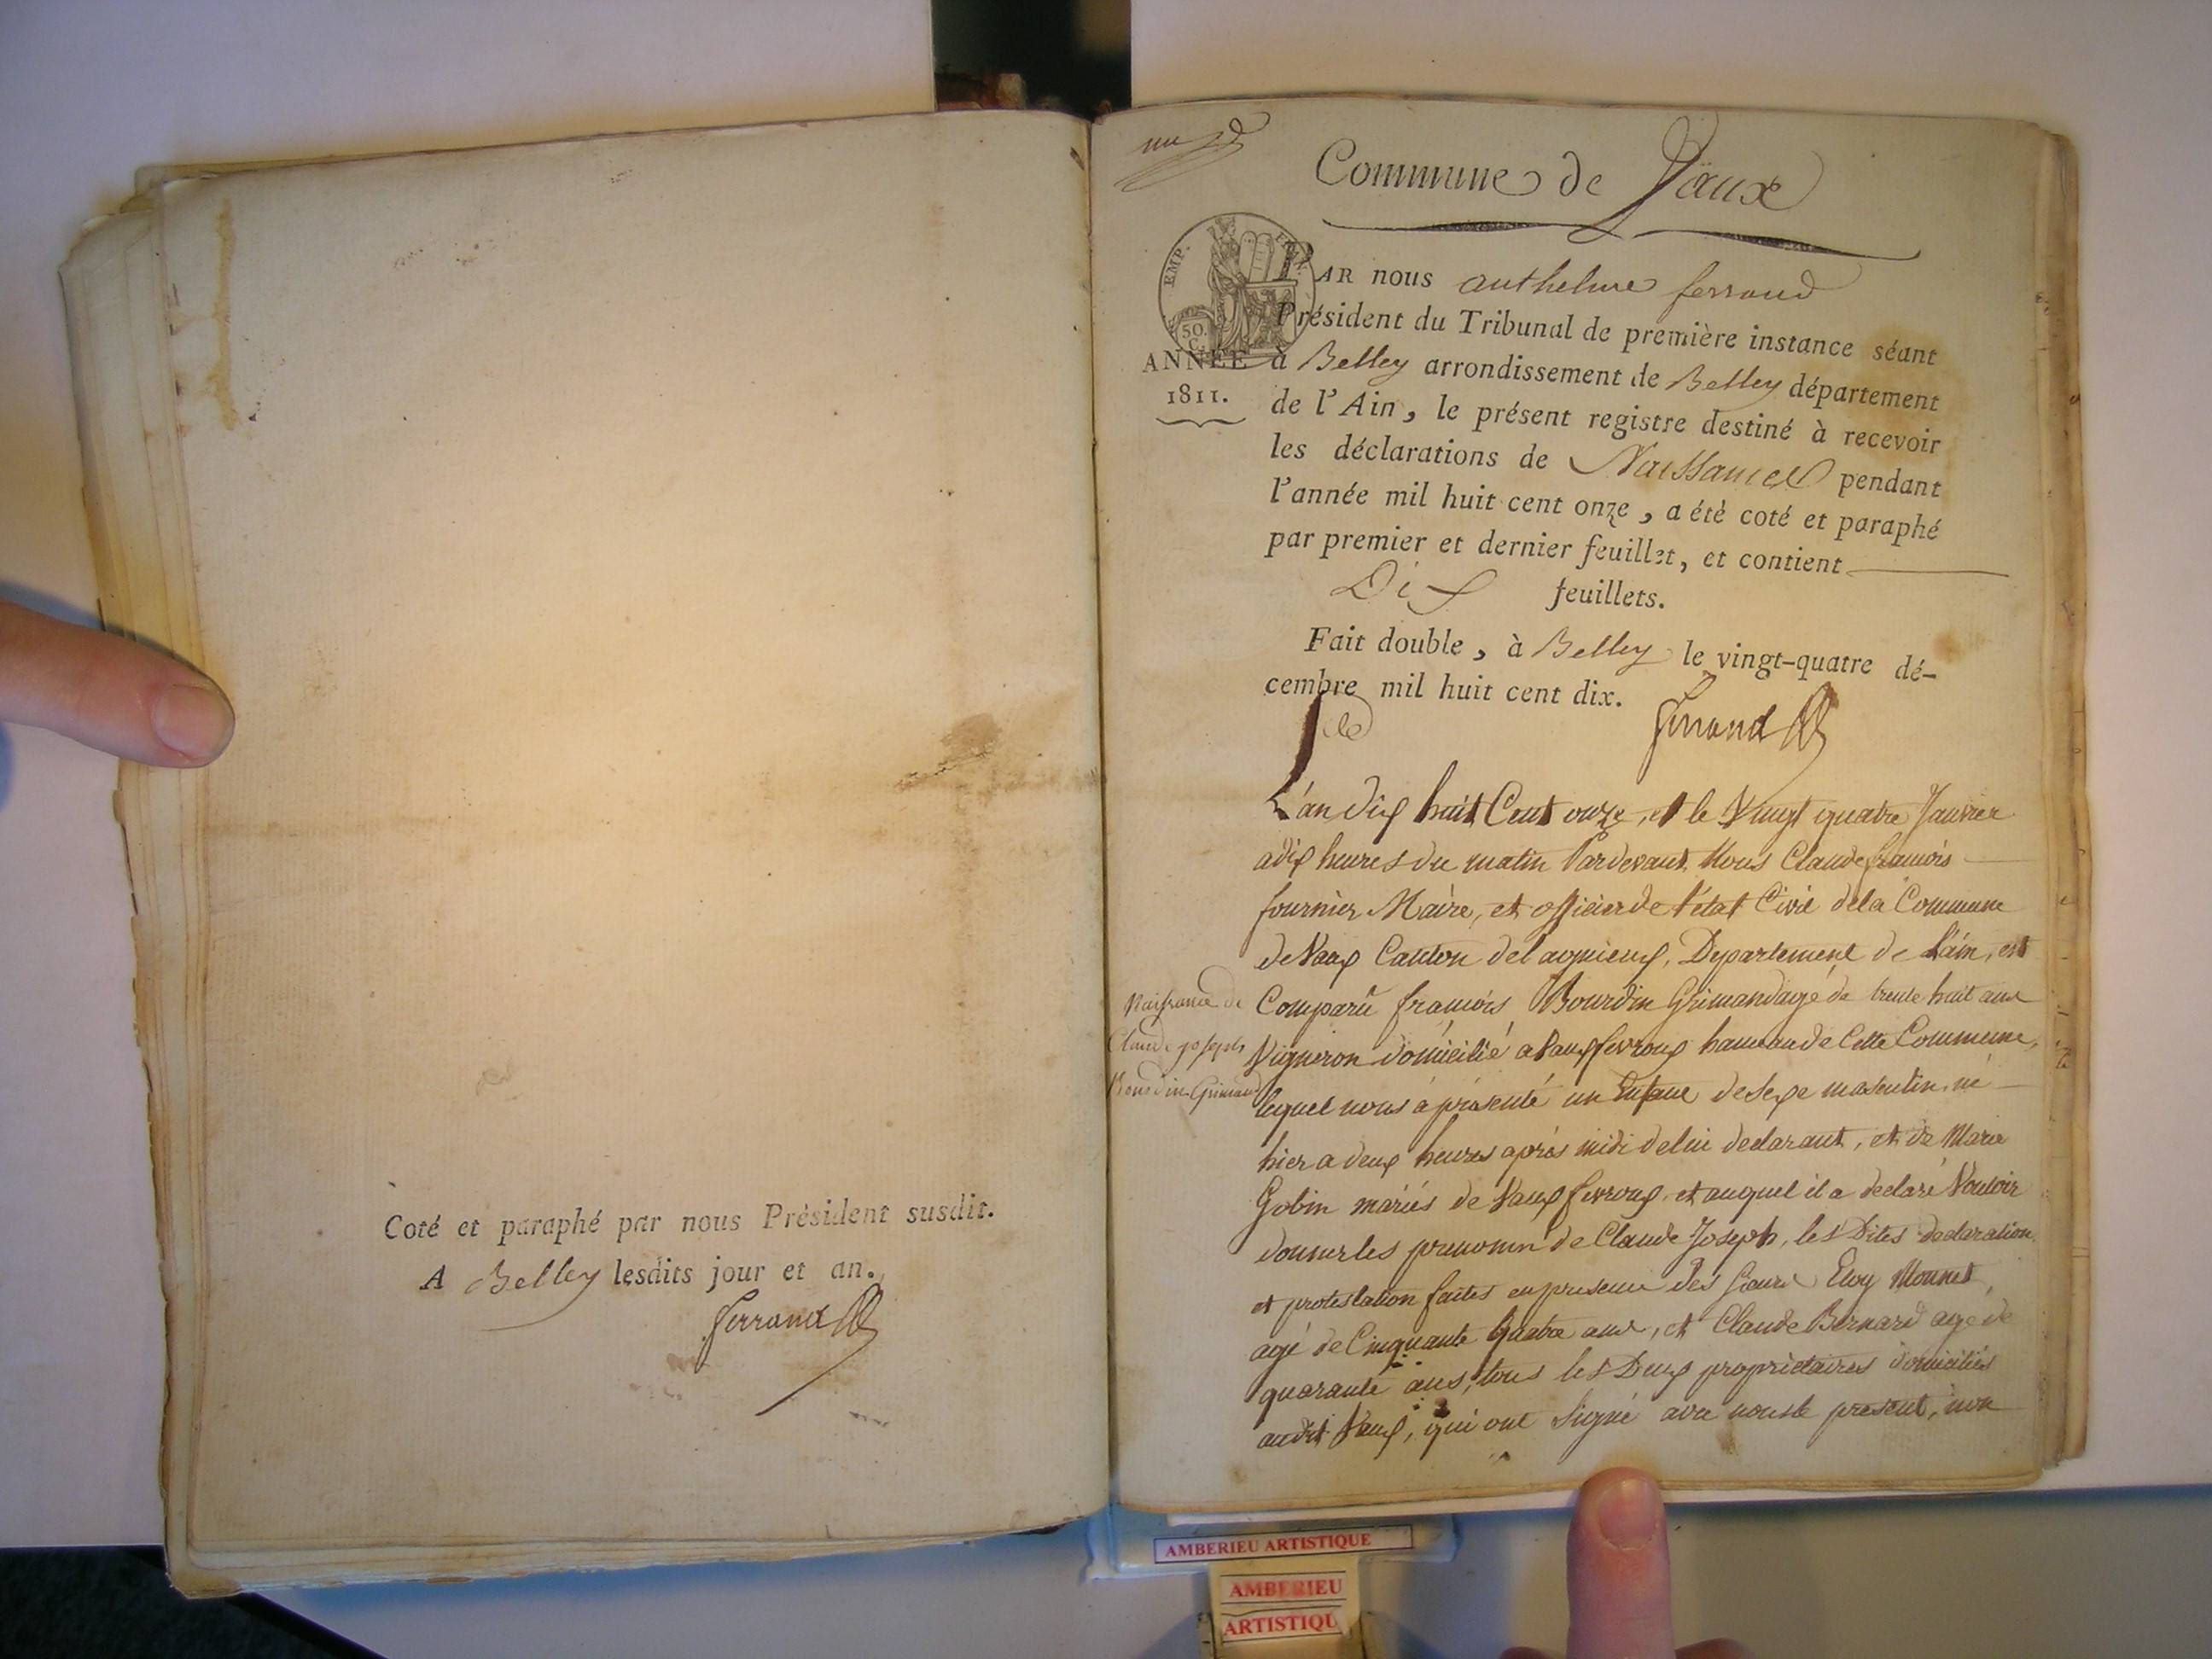 Coté et paraphé par nous Président susdit.
A Belley lesdits jour et an.
Ferrand
un
Commune de Vaux
EMP. FRAN.
50. C.
ANNÉE
1811.
PAR nous anthelme ferrand
Président du Tribunal de première instance séant
à Belley arrondissement de Belley département
de l'Ain, le présent registre destiné à recevoir
les déclarations de Naissances pendant
l'année mil huit cent onze, a été coté et paraphé
par premier et dernier feuillet, et contient
Dix feuillets.
Fait double, à Belley le vingt-quatre dé-
cembre mil huit cent dix.
Ferrand
L'an dix huit Cent onze, et le Vingt quatre Janvier
a dix heures du matin Pardevant Nous Claude francois
fournier Maire, et officier de l'état Civil de la Commune
de Vaux Canton de Lagnieux, Departement de Lain, est
Naissance de
Claude joseph
Bourdin Grimaud
Comparu francois Bourdin Grimaud agé de trente huit ans
Vigneron domicilié a Vaux fevroux hameau de Cette Commune,
lequel nous a présenté un Enfant de Sexe masculin, né
hier a deux heures après midi de lui declarant, et de Marie
Gobin mariés de Vaux fevroux, et auquel il a declaré Vouloir
donner les prenomn de Claude Joseph, les Dites declaration
et protestation faites en presence des Sieurs Eloy Monnet,
agé de Cinquante Quatre ans, et Claude Bernard age de
quarante ans, tous les Deux propriétaires domiciliés
audit Vaux, qui ont Signé avec nous le present, non
AMBERIEU ARTISTIQUE
AMBERIEU
ARTISTIQU